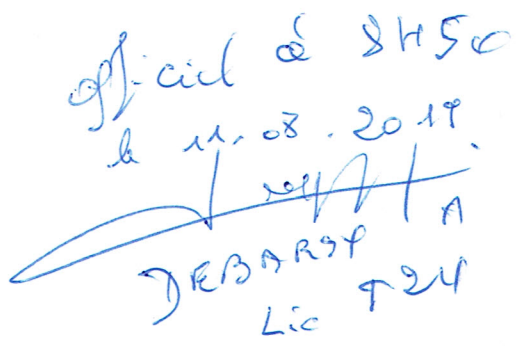 Officiel à 8H50
le 11.08.2019
A
DEBARSY
Lic 924